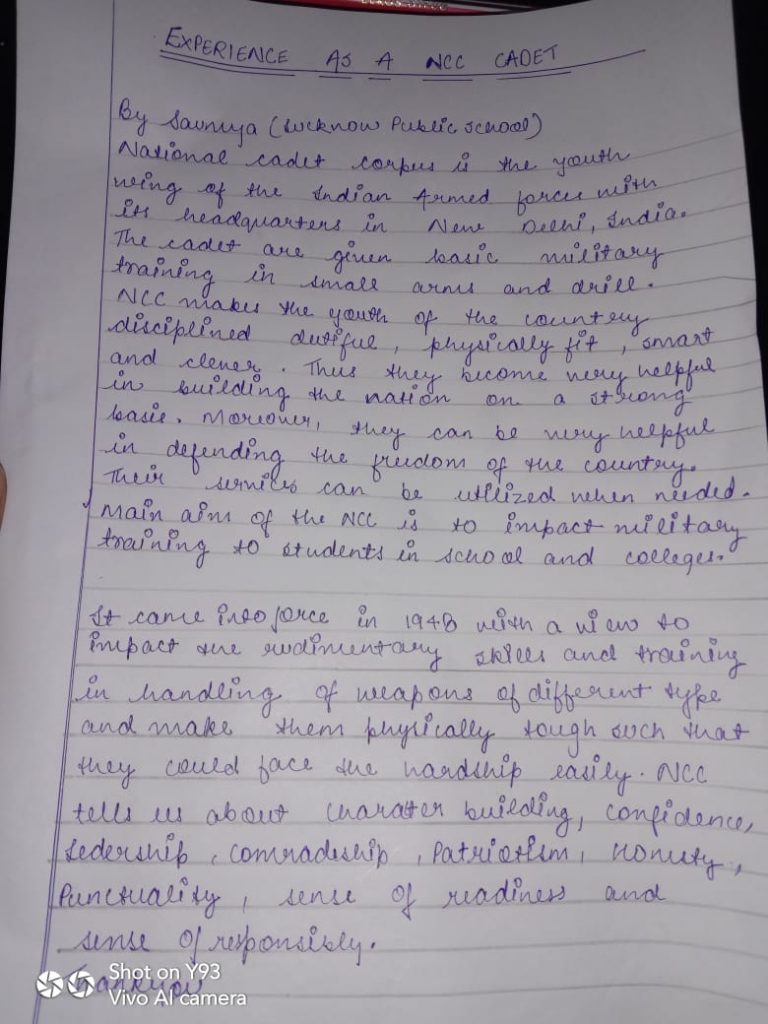 EXPERIENCE AS A NCC CADET
By Saumya (Lucknow Public School)
National cadet corpus is the youth
wing of the Indian Armed forces with
its headquarters in New Delhi, India.
The cadet are given basic military
training in small arms and drill.
NCC makes the youth of the country
disciplined dutiful, physically fit, smart
and clever. Thus they become very helpful
in building the nation on a strong
basis. Moreover, they can be very helpful
in defending the freedom of the country.
Their services can be utilized when needed.
Main aim of the NCC is to impact military
training to students in school and colleges.
It came into force in 1948 with a view to
impact the rudimentary skills and training
in handling of weapons of different type
and make them physically tough such that
they could face the hardship easily. NCC
tells us about charater building, confidence,
Ledership, comradeship, Patriotism, Honesty,
Punctuality, sense of readiness and
sense of responsibly.
Thankyou
Shot on Y93
Vivo AI camera